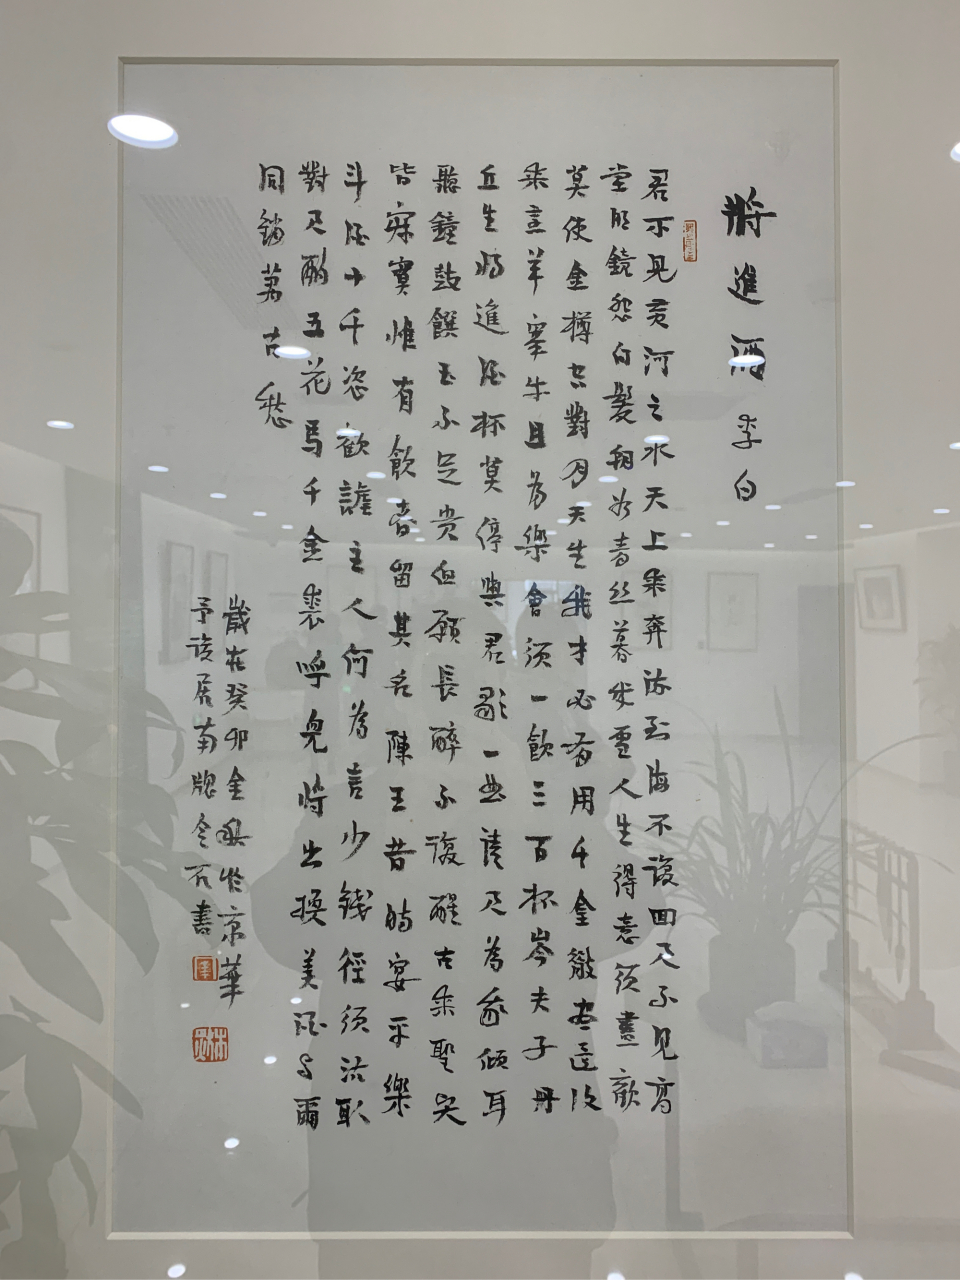 將進酒 李白
君不见黄河之水天上来奔流到海不復回又不见高
堂明鏡悲白髮朝如青丝暮成雪人生得意须盡歡
莫使金樽空對月天生我才必有用千金散盡還復
来烹羊宰牛且為樂會须一飲三百杯岑夫子丹
丘生將進酒杯莫停與君歌一曲請君為我傾耳
聽鐘鼓饌玉不足贵但願長醉不復醒古来聖賢
皆寂寞惟有飲者留其名陳王昔時宴平樂
斗酒十千恣歡謔主人何為言少錢徑须沽取
對君酌五花馬千金裘呼兒將出換美酒与爾
同銷萬古愁
歲在癸卯金秋於京華
予 居南牕 書